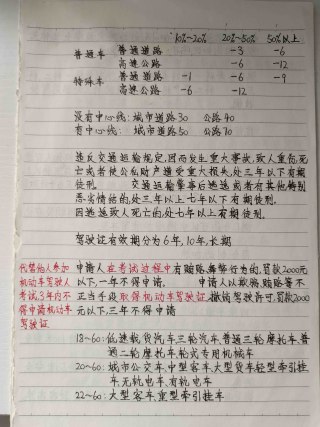 10%~20% 20%~50% 50%以上
普通车 普通道路 -3 -6
高速公路 -6 -12
特殊车 普通道路 -1 -6 -9
高速公路 -6 -12
没有中心线: 城市道路30 公路40
有中心线: 城市道路50 公路70
违反交通运输规定,因而发生重大事故,致人重伤,死
亡或者使公私财产遭受重大损失,处三年以下有期
徒刑。 交通运输肇事后逃逸或者有其他特别
恶劣情结的,处三年以上七年以下有期徒刑。
因逃逸致人死亡的,处七年以上有期徒刑。
驾驶证有效期分为6年,10年,长期
申请人在考试过程中有贿赂,舞弊行为的,罚款2000元
以下,一年不得申请。 申请人以欺骗,贿赂等不
正当手段取得机动车驾驶证,撤销驾驶许可,罚款2000
元以下,三年不得申请
代替他人参加
机动车驾驶人
考试,3年内不
得申请机动车
驾驶证
18~60: 低速载货汽车,三轮汽车,普通三轮摩托车,普
通二轮摩托车,轮式专用机械车
20~60: 城市公交车,中型客车,大型货车,轻型牵引挂
车,无轨电车,有轨电车
22~60: 大型客车,重型牵引挂车